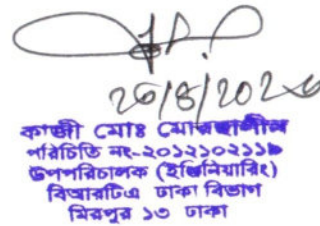 26/8/202
কাজী মোঃ
পরিচিতি নং-২০১২১০২১১৯
উপপরিচালক (ইঞ্জিনিয়ারিং)
বিআরটিএ ঢাকা বিভাগ
মিরপুর ১৩ ঢাকা